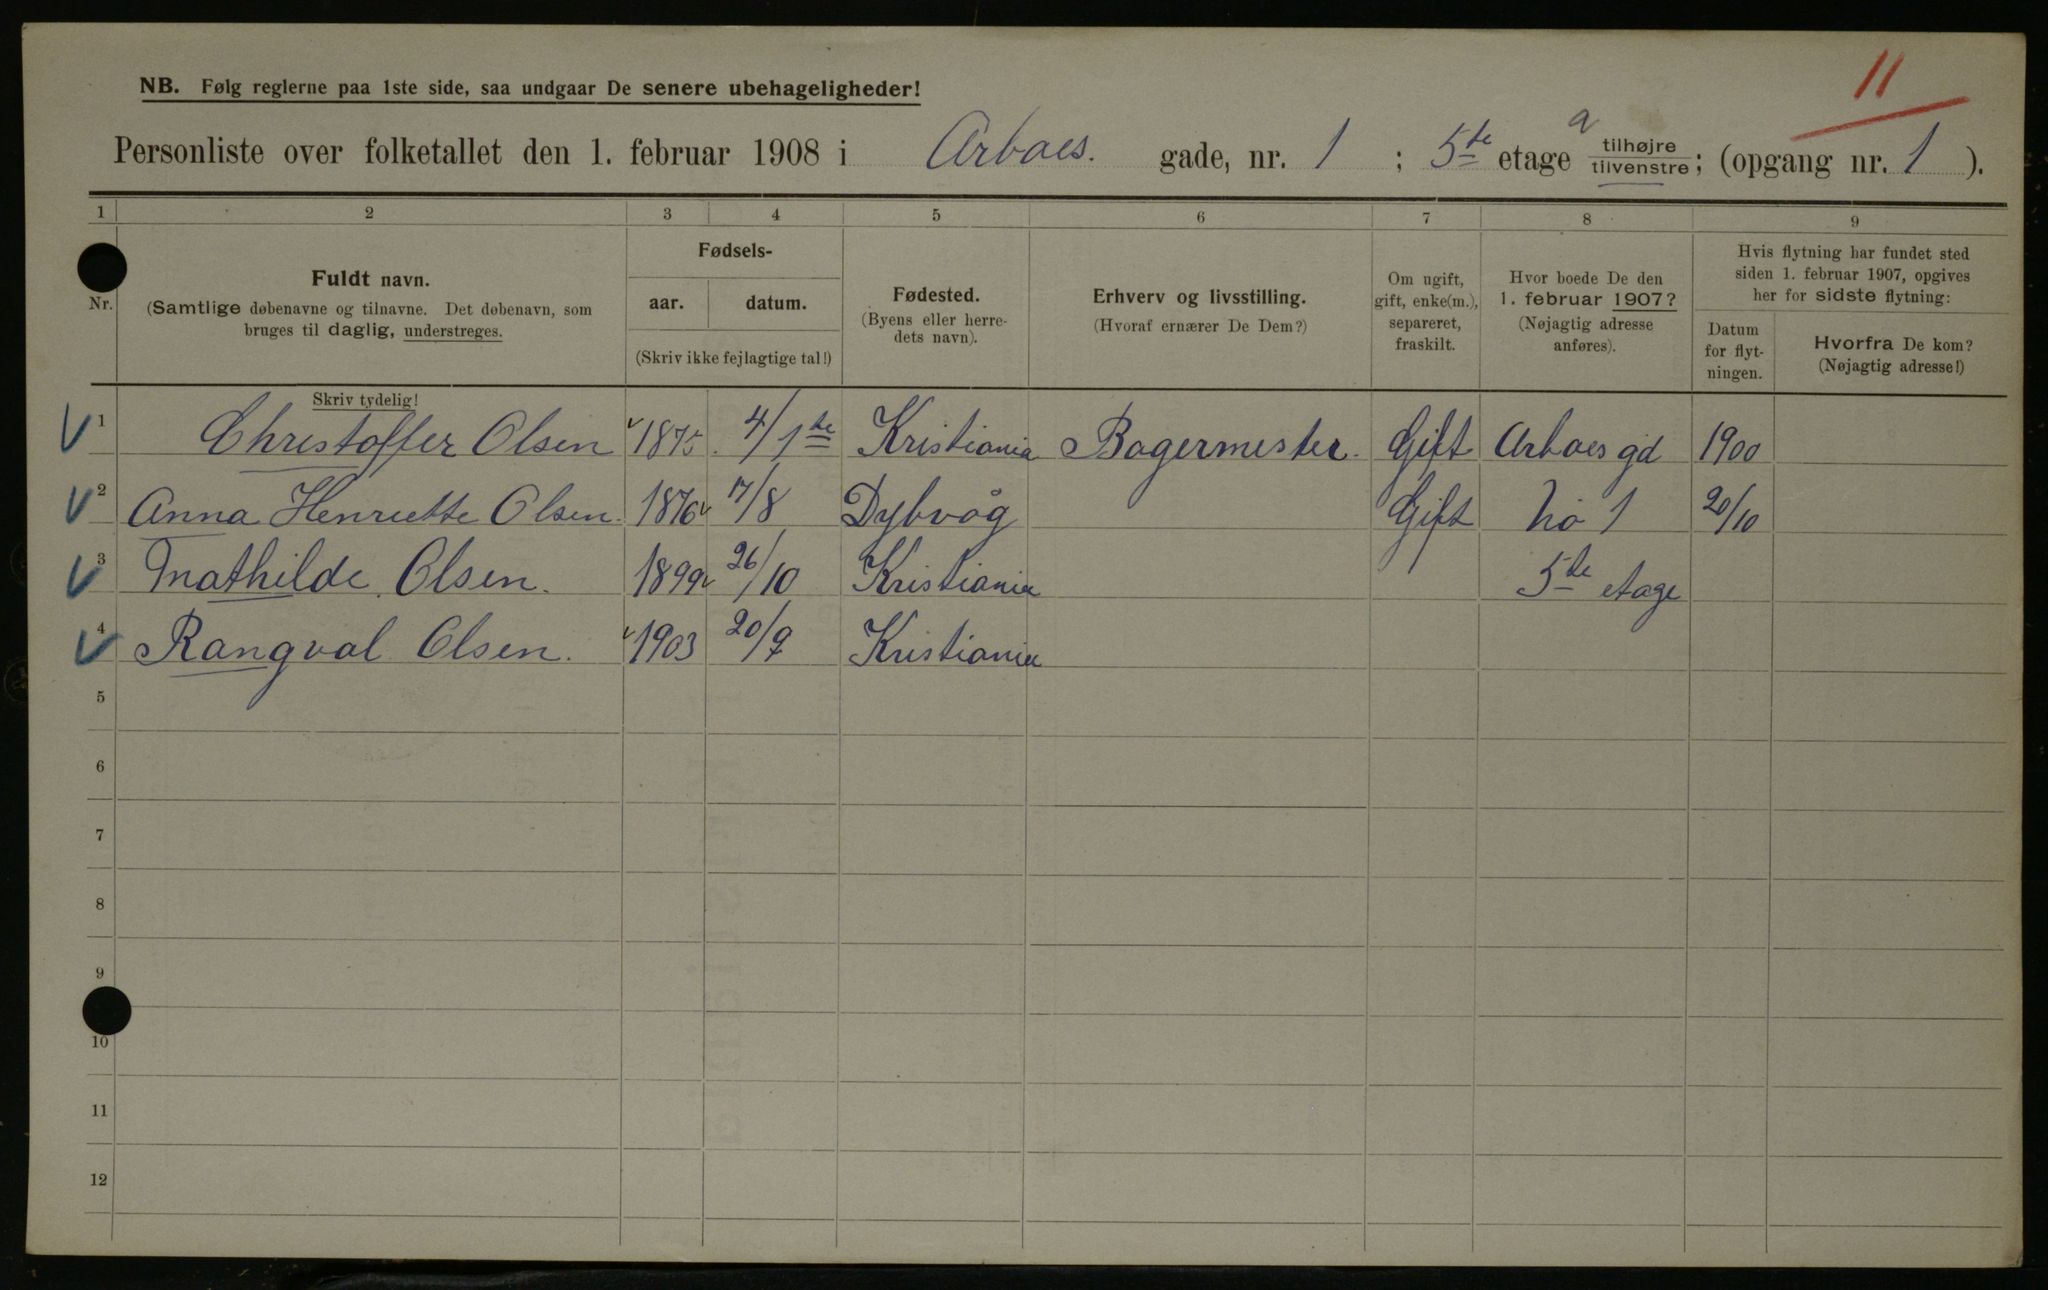 11
NB. Følg reglerne paa 1ste side, saa undgaar De senere ubehageligheder!
Personliste over folketallet den 1. februar 1908 i Arboes. gade, nr. 1 ; 5te etage a tilhøjre tilvenstre; (opgang nr. 1 ).
1 2 3 4 5 6 7 8 9
Nr.
Fuldt navn.
(Samtlige døbenavne og tilnavne. Det døbenavn, som
bruges til daglig, understreges.
Skriv tydelig!
Fødsels-
aar. datum.
(Skriv ikke fejlagtige tal!)
Fødested.
(Byens eller herre-
dets navn).
Erhverv og livsstilling.
(Hvoraf ernærer De Dem?)
Om ugift,
gift, enke(m.),
separeret,
fraskilt.
Hvor boede De den
1. februar 1907?
(Nøjagtig adresse
anføres).
Hvis flytning har fundet sted
siden 1. februar 1907, opgives
her for sidste flytning:
Datum
for flyt-
ningen.
Hvorfra De kom?
(Nøjagtig adresse!)
1 Christoffer Olsen 1875. 4/1te Kristiania Bagermester. Gift Arboes gd 1900
2 Anna Henriette Olsen. 1876 17/8 Dybvåg Gift No 1 20/10
3 Mathilde Olsen. 1899 26/10 Kristiania 5te etage
4 Rangval Olsen. 1903 20/9 Kristiania
5
6
7
8
9
10
11
12